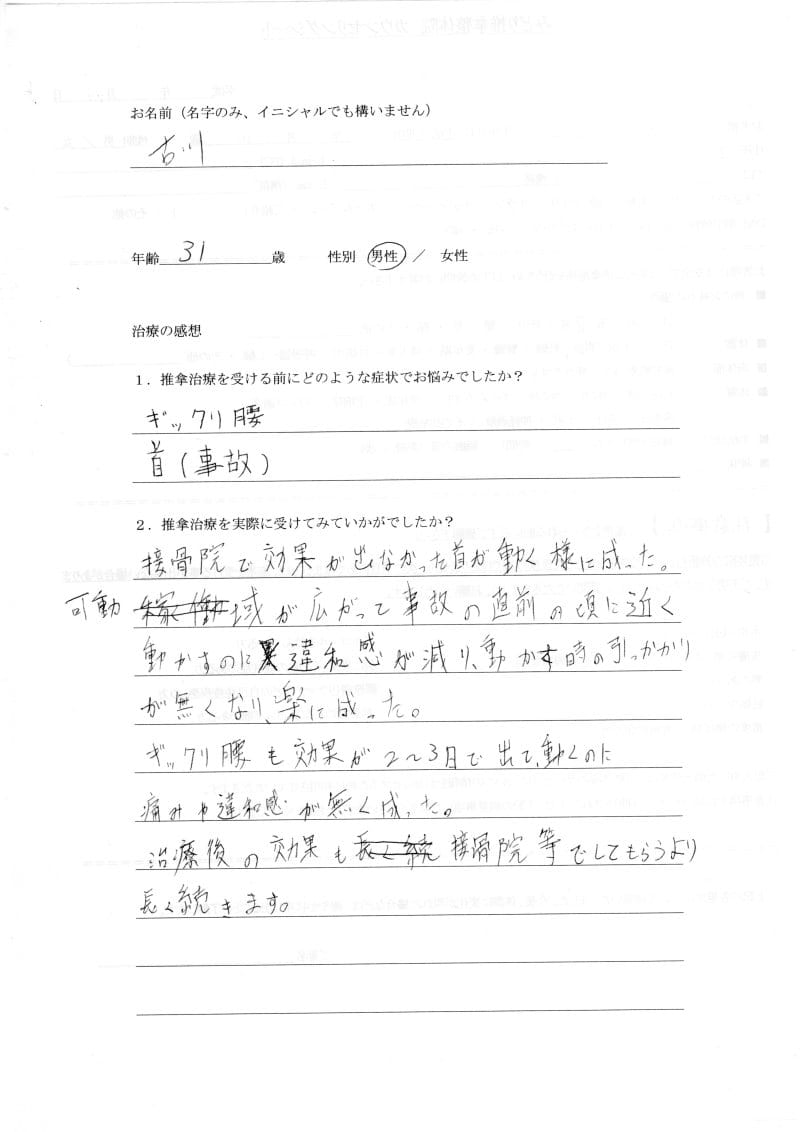 お名前（名字のみ、イニシャルでも構いません）
古川
年齢 31 歳 性別 男性 ／ 女性
治療の感想
１．推拿治療を受ける前にどのような症状でお悩みでしたか？
ギックリ腰
首（事故）
２．推拿治療を実際に受けてみていかがでしたか？
接骨院で効果が出なかった首が動く様に成った。
可動 稼働域が広がって事故の直前の頃に近く
動かすのに違和感が減り、動かす時の引っかかり
が無くなり、楽に成った。
ギックリ腰も効果が2～3日で出て、動くのに
痛みや違和感が無く成った。
治療後の効果も長く続接骨院等でしてもらうより
長く続きます。